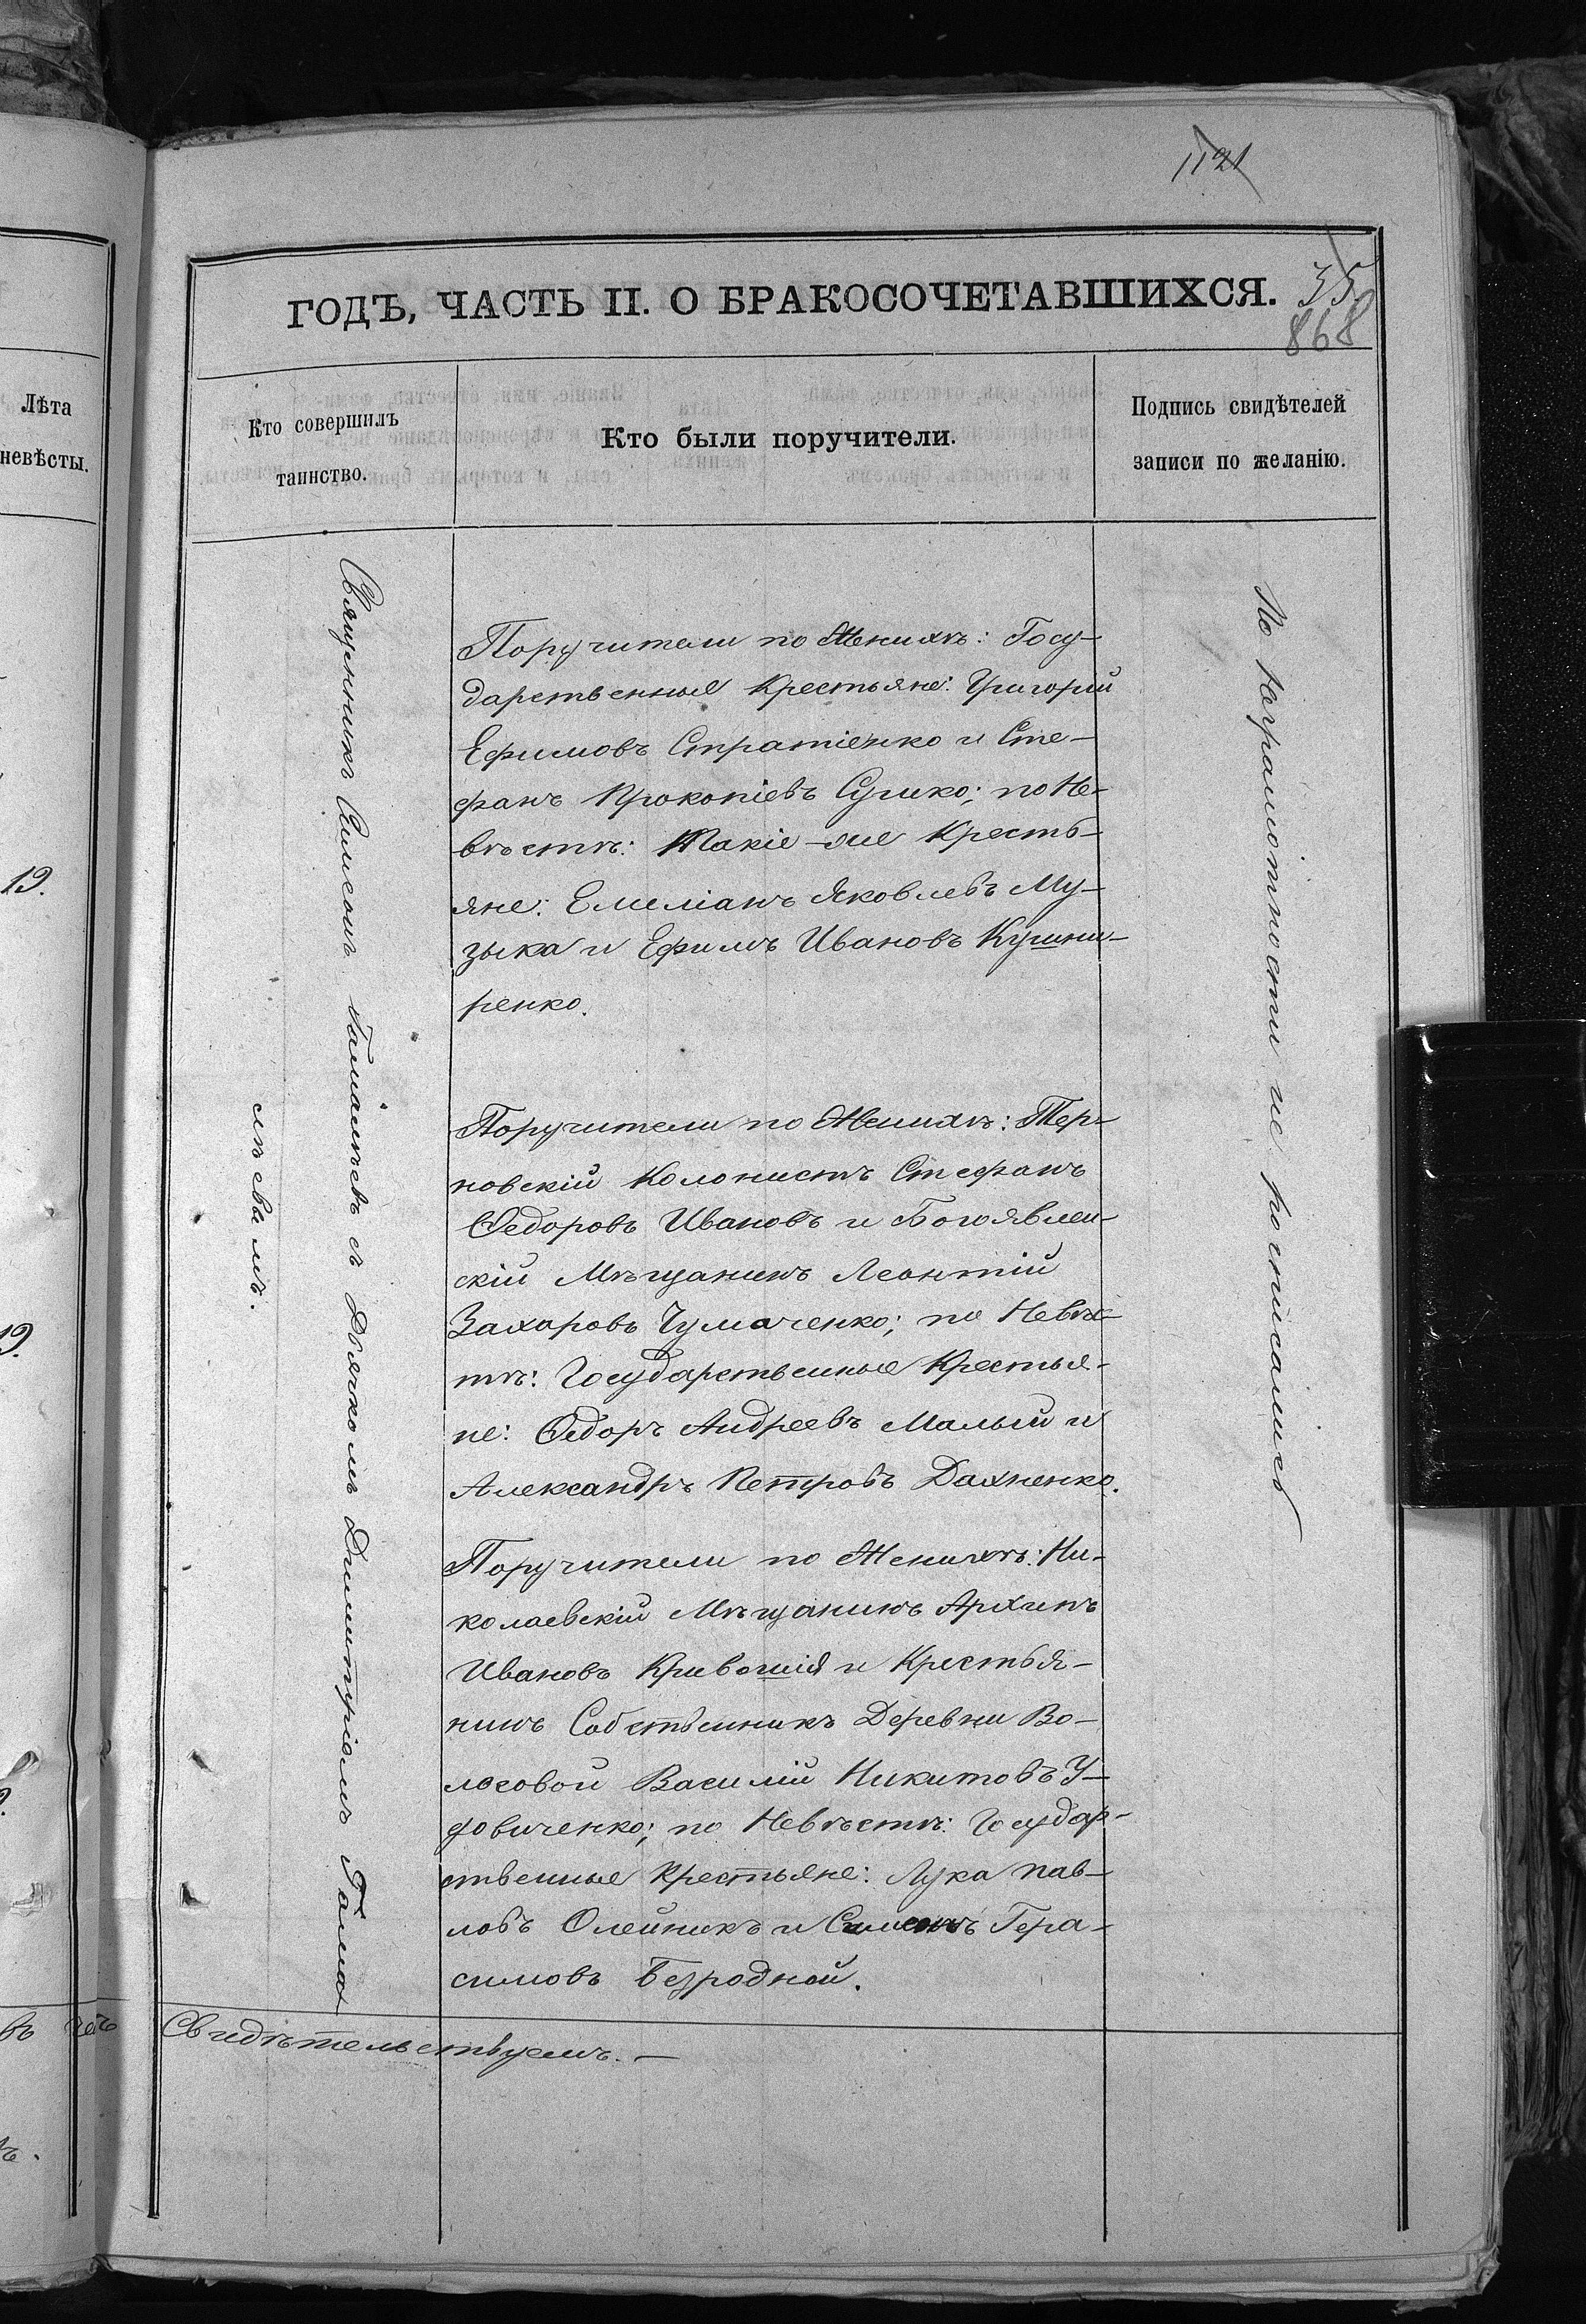 1121
ГОДЪ, ЧАСТЬ II. О БРАКОСОЧЕТАВШИХСЯ.
35
868
Лѣта
невѣсты.
Кто совершилъ
таинство.
Кто были поручители.
Подпись свидѣтелей
записи по желанію.
19.
19.
Священникъ Симеонъ Гамалѣевъ съ Дьячкомъ Димитріемъ Гома
лѣевымъ.
Поручители по Женихѣ: Госу-
дарственные Крестьяне: Григорій
Ефимовъ Стратіенко и Сте-
фанъ Прокопіевъ Сушко; по Не-
вѣстѣ: Такіе-же Кресть-
яне: Емеліанъ Яковлевъ Му-
зыка и Ефимъ Ивановъ Кушни-
ренко.
Поручители по Женихѣ: Тер-
новскій Колонистъ Стефанъ
Ѳедоровъ Ивановъ и Богоявлен-
скій Мѣщанинъ Леонтій
Захаровъ Чумаченко; по Невѣс-
тѣ: Государственные Крестья-
не: Ѳедоръ Андреевъ Малый и
Александръ Петровъ Дахненко.
Поручители по Женихѣ: Ни-
колаевскій Мѣщанинъ Архипъ
Ивановъ Кривошія и Крестья-
нинъ Собственникъ Деревни Во-
лосовой Василій Никитовъ У-
довиченко; по Невѣстѣ: Государ-
ственные Крестьяне: Лука Пав-
ловъ Олейникъ и Симеонъ Гера-
симовъ Безродной.
По неграмотности не росписались
Свидѣтельствуемъ. —